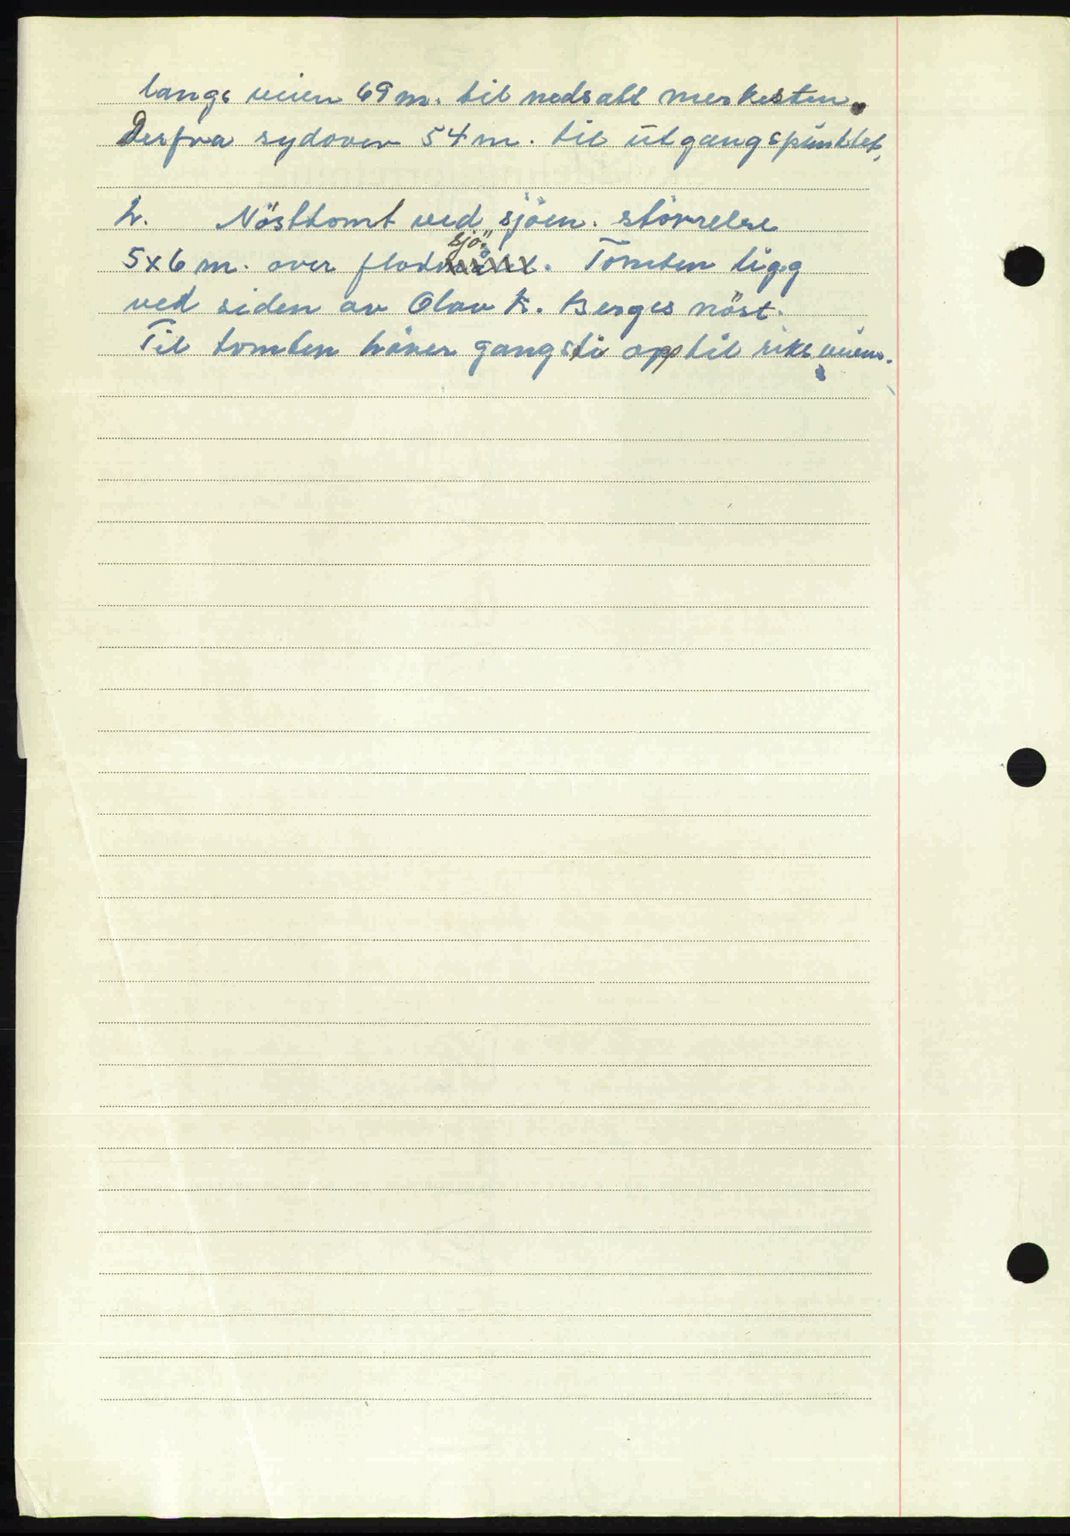 langs veien 69 m. til nedsatt merkesten.
Derfra sydover 54 m. til utgangspunktet,
2. Nösttomt ved sjöen. störrelse
sjö.
5x6 m. over flod. Tomten ligg
ved siden av Olav K. Berges nöst.
Til tomten höver gangsti opp til riksveien.